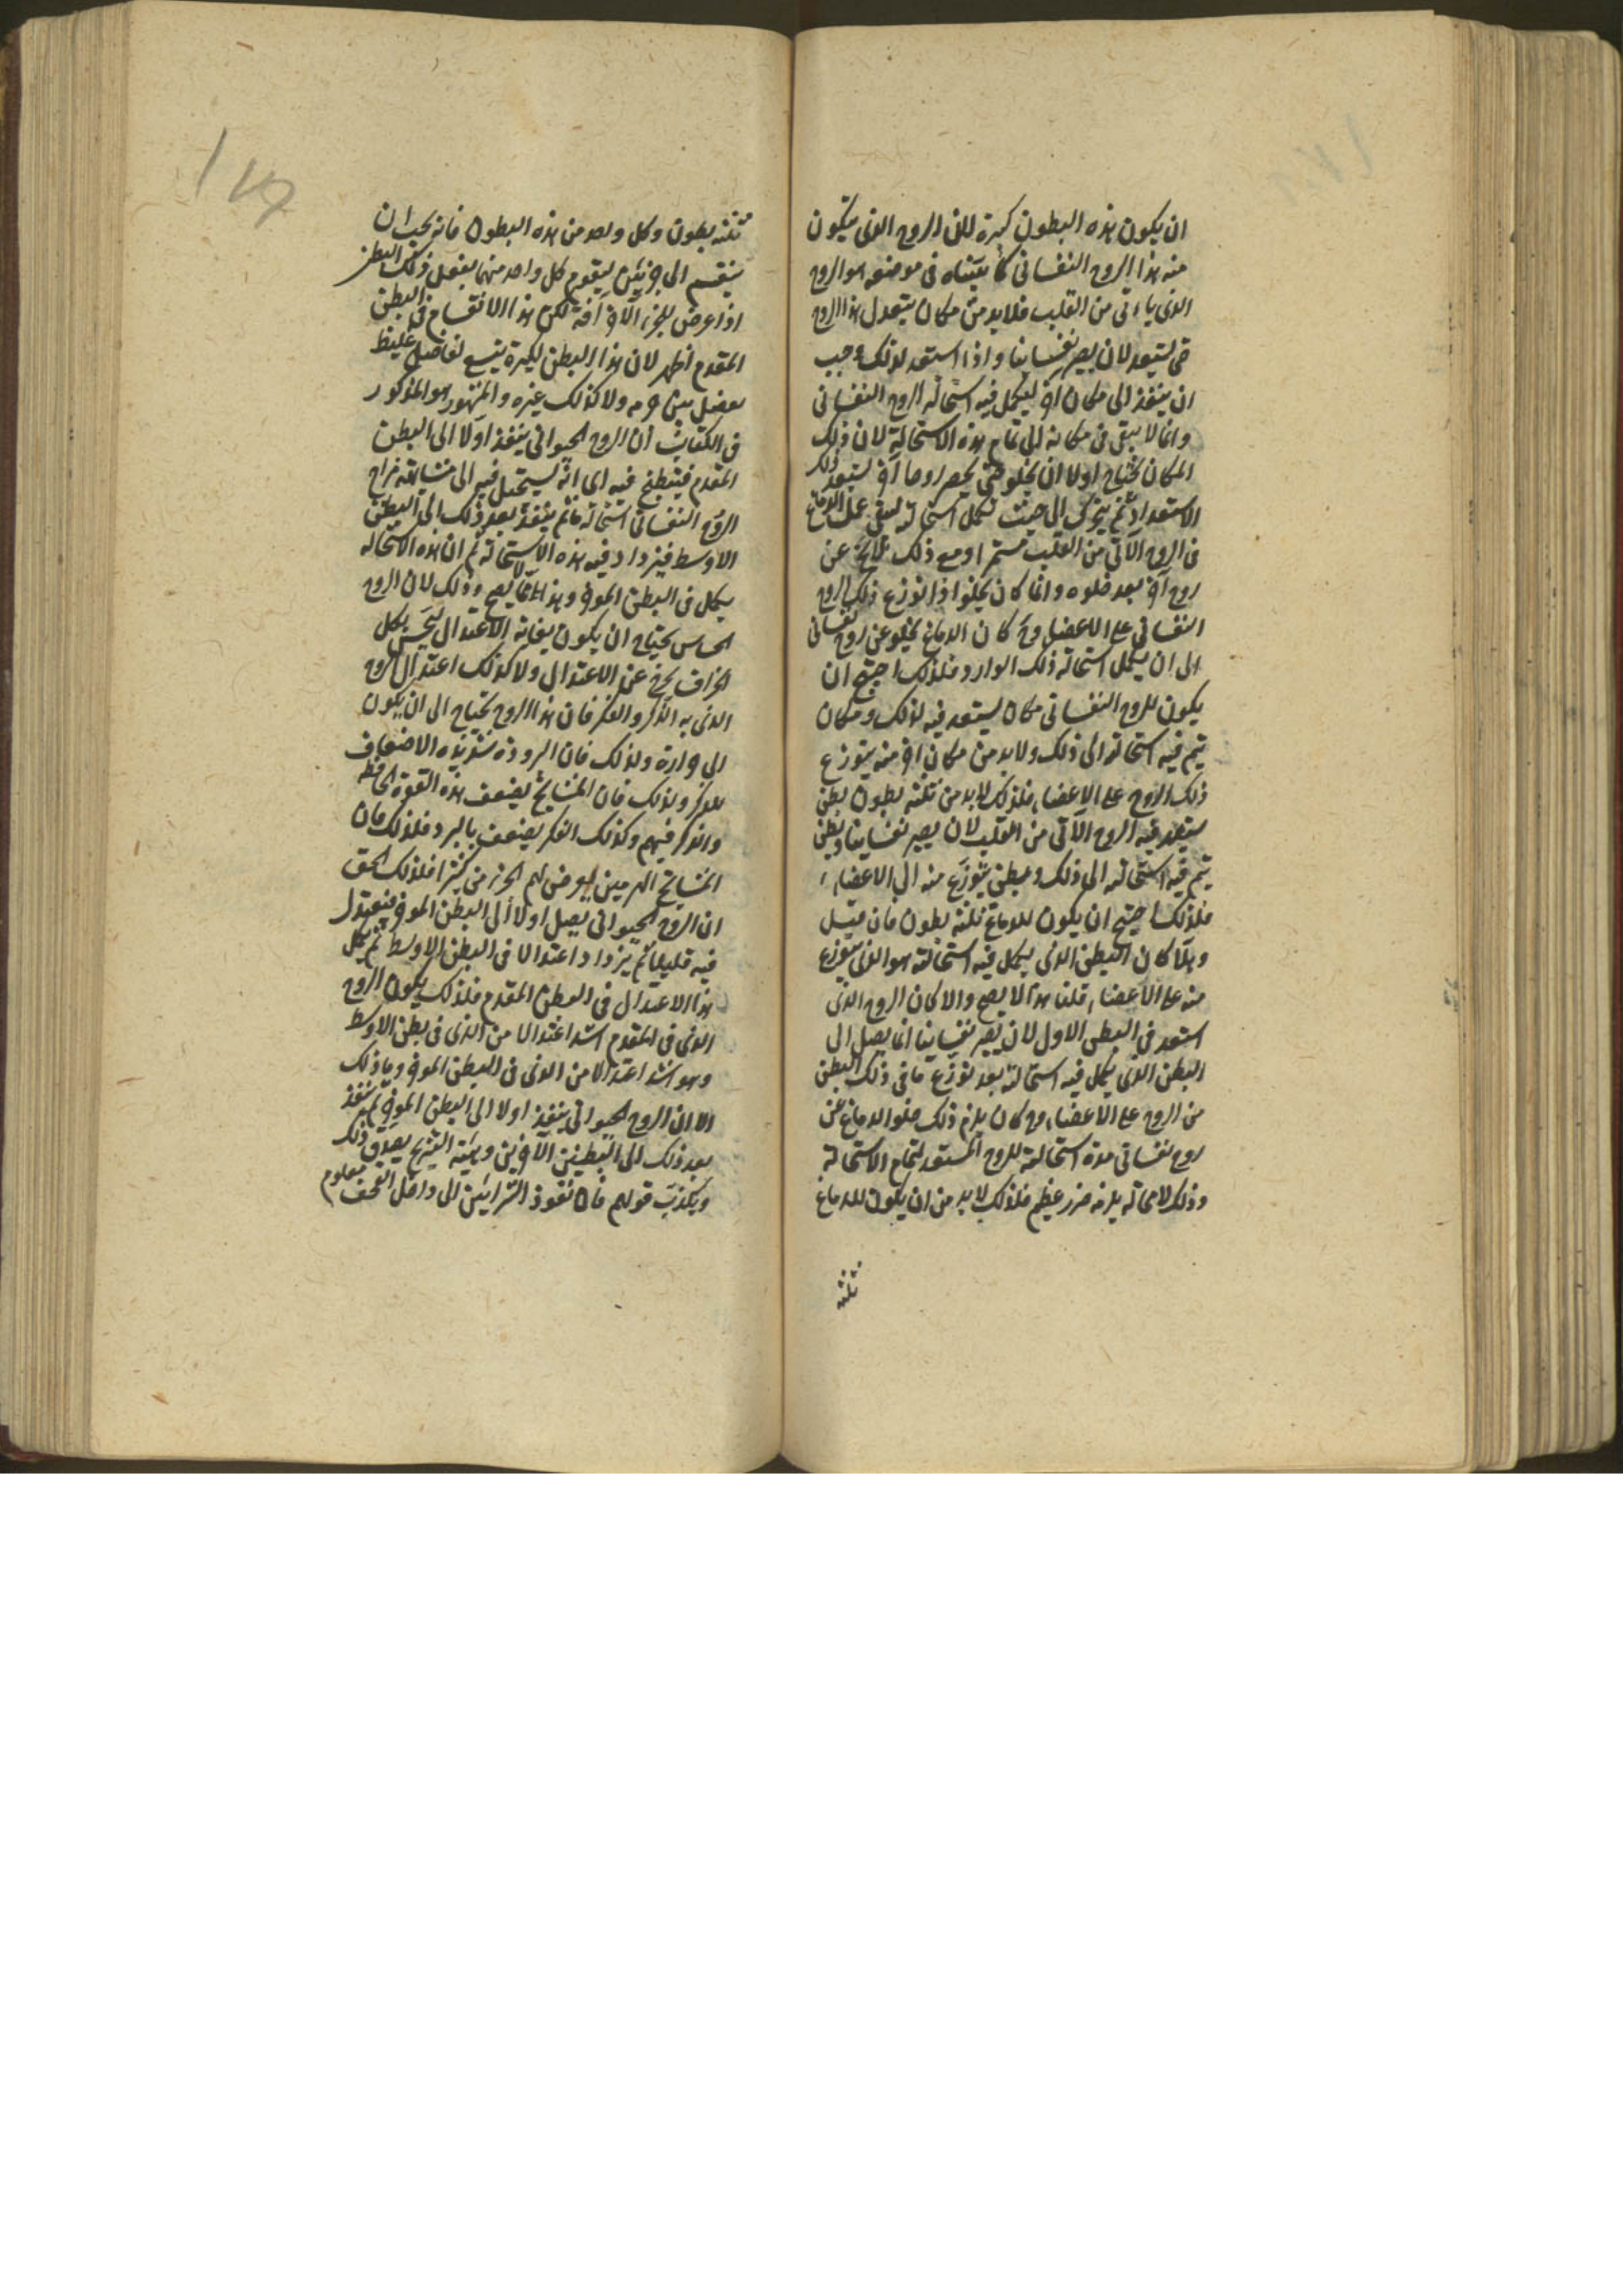 ان يكون هذه البطون كبيرة لان الروح الذى يتكون
منه هذا الروح النفسانى كما بيّناه فى موضعه هو الروح
الذى ياءتى من القلب فلابد من مكان يتعدل هذا الروح
حتى يستعد لان يصير نفسانيا واذا استعد لذلك وجب
ان ينفذ الى مكان اخر ليكمل فيه استحالة الروح النفسانى
وانما لا يبقى فى مكانه الى تمام هذه الاستحالة لان ذلك
المكان يحتاج اولا ان يخلو حتى يحصر روحا آخر ليستعد ذلك
الاستعداد ثم يتحرك الى حيث تكمل استحالته ليبقى عمل الدماغ
فى الروح الآتى من القلب مستمرا ومع ذلك فلا عن
روح آخر بعد خلوه وانما كان يخلو اذا توزع ذلك الروح
النفسانى على الاعضاء وح كان الدماغ يخلو عن روح نفسانى
الى ان يكمل استحالة ذلك الوارد فلذلك احتيج ان
يكون للروح النفسانى مكان يستعد فيه لذلك ومكان
يتم فيه استحالته الى ذلك ولابد من مكان اخر منه يتوزع
ذلك الروح على الاعضاء فلذلك لابد من ثلثه بطون بطن
يستعد فيه الروح الآتى من القلب لان يصير نفسانيا وبطن
يتم فيه استحالته الى ذلك وبطن يتوزع منه الى الاعضاء
فلذلك احتيج ان يكون للدماغ ثلثة بطون فان قيل
وهلّا كان البطن الذى يكمل فيه استحالته هو الذى يتوزع
منه على الاعضاء قلنا هذا لا يصح والا كان الروح الذى
استعد فى البطن الاول لان يصير نفسانيا انما يصل الى
البطن الذى يكمل فيه استحالته بعد توزع ما فى ذلك البطن
من الروح على الاعضاء وح كان يلزم ذلك خلو الدماغ عن
روح نفسانى مدة استحالة الروح المستعد لتمام الاستحالة
وذلك لا محالة يلزمه ضرر عظيم فلذلك لابد من ان يكون للدماغ
ثلثه
ثلثه بطون وكل واحد من هذه البطون فانه يجب ان
ينقسم الى جزئين ليقوم كل واحد منهما بفعل ذلك البطن
اذا عرض للجزء الآخر آفة لكن هذا الانقسام فى البطن
المقدم اظهر لان هذا البطن لكبره يتسع لفاصل غليظ
يفصل بين جزءيه ولا كذلك غيره والمشهور هو المذكور
فى الكتاب ان الروح الحيوانى ينفذ اولا الى البطن
المقدم فينطبخ فيه اى انه يستحيل فيه الى مشابهة مزاج
الروح النفسانى استحالة ما ثم ينفذ بعد ذلك الى البطن
الاوسط فيزداد فيه هذه الاستحالة ثم ان هذه الاستحالة
يكمل فى البطن المؤخر وهذا مما لا يصح وذلك لان الروح
الحساس يحتاج ان يكون بغاية الاعتدال ليحس بكل
انحراف يخرج عن الاعتدال ولا كذلك اعتدال الروح
الذى به الذكر والفكر فان هذا الروح يحتاج الى ان يكون
الى حرارة ولذلك فان البرودة شديدة الاضعاف
للفكر ولذلك فان المشايخ يضعف هذه القوة الحافظه
والذكر فيهم وكذلك الفكر يضعف بالبرد فلذلك فان
المشايخ الهرمين يعرض لهم الخرف كثيرا فلذلك الحق
ان الروح الحيوانى يصل اولا الى البطن المؤخر فيعتدل
فيه قليلا ثم يزداد اعتدالا فى البطن الاوسط ثم يكمل
هذا الاعتدال فى البطن المقدم فلذلك يكون الروح
الذى فى المقدم اشد اعتدالا من الذى فى بطن الاوسط
وهو اشد اعتدالا من الذى فى البطن المؤخر وما ذلك
الا ان الروح الحيوانى ينفذ اولا الى البطن المؤخر ثم ينفذ
بعد ذلك الى البطنين الآخرين وهيئة التشريح يصدق ذلك
ويكذب قولهم فان نفوذ الشرائين الى داخل القحف معلوم